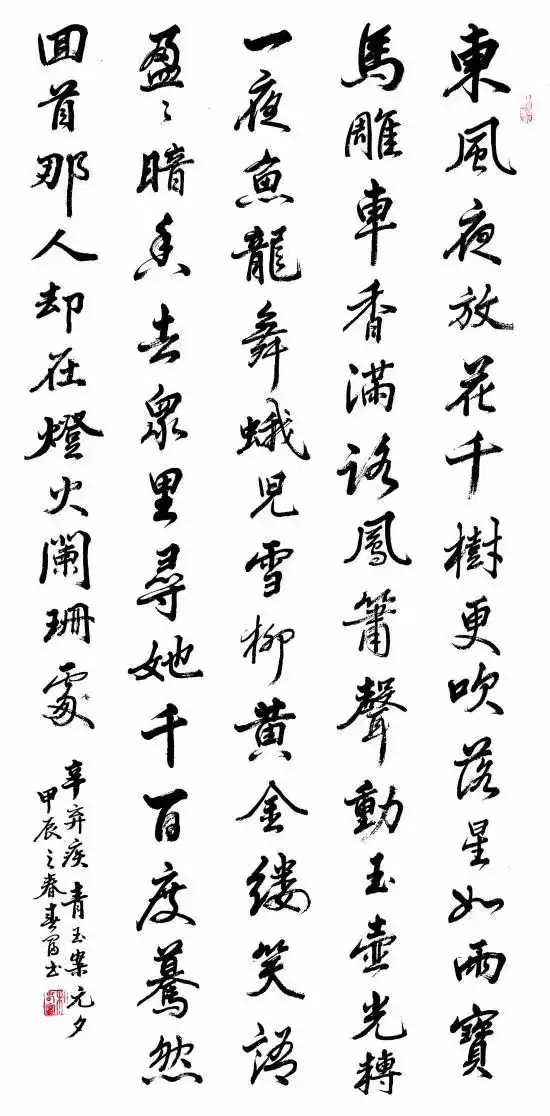 東風夜放花千樹更吹落星如雨寶
馬雕車香滿路鳳簫聲動玉壺光轉
一夜魚龍舞蛾兒雪柳黄金缕笑語
盈々暗香去衆里尋她千百度驀然
回首那人却在燈火闌珊處
辛弃疾青玉案元夕
甲辰之春春富书